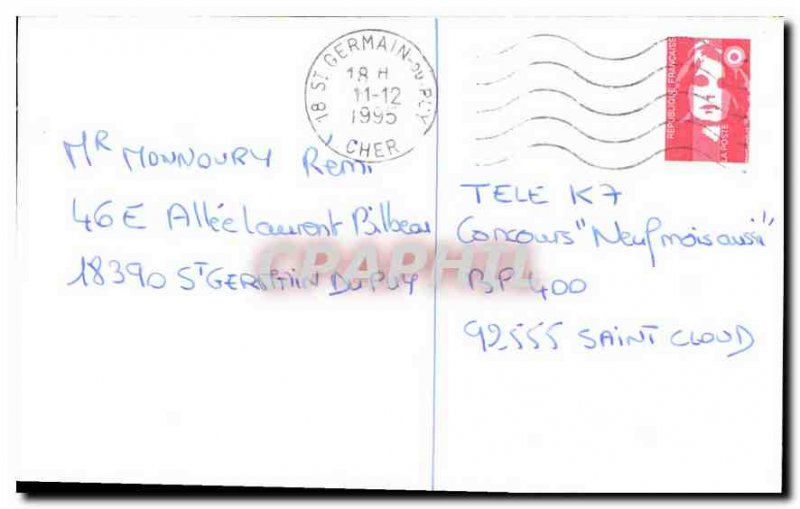 18 ST GERMAIN-DU-PUY
18 H
11-12
1995
CHER
RÉPUBLIQUE FRANÇAISE
LA POSTE
MR MONNOURY Remi
46E Allée Laurent Bilbeau
18390 ST GERMAIN DU PUY
TELE K7
Concours "Neuf mois aussi"
BP 400
92555 SAINT CLOUD
CPAPHIL